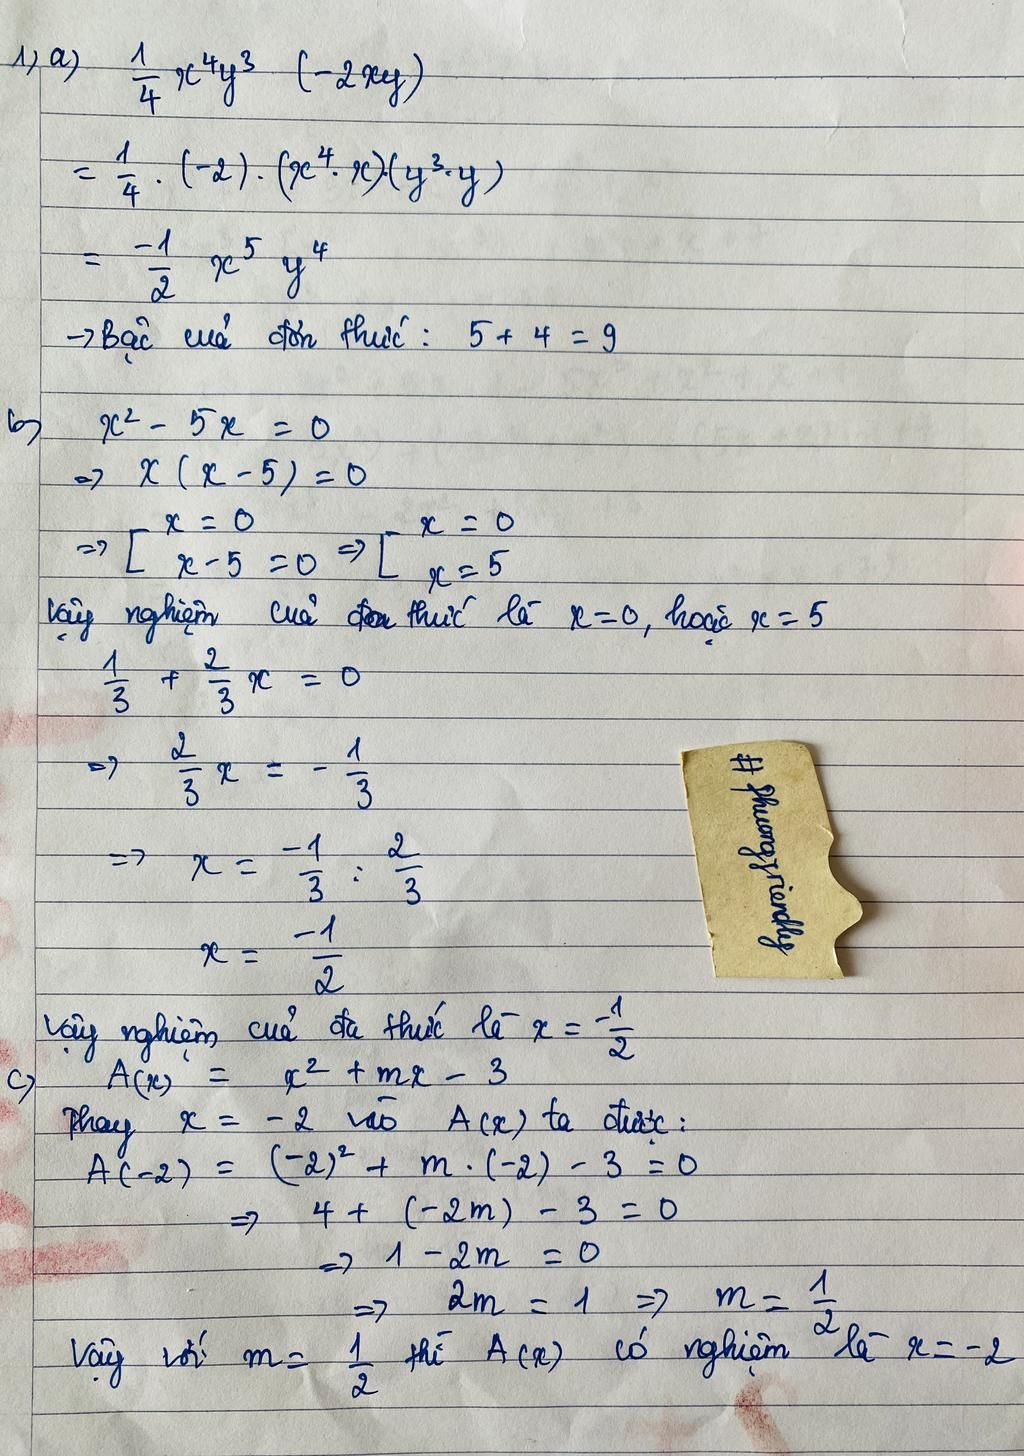 1, a) 1/4 x⁴y³ (-2xy)
= 1/4 . (-2) . (x⁴. x).(y³.y)
= -1/2 x⁵ y⁴
→ Bậc của đơn thức : 5 + 4 = 9
b, x² - 5x = 0
=> x (x - 5) = 0
=> [ x = 0 => [ x = 0
x - 5 = 0 x = 5
Vậy nghiệm của thức là x = 0, hoặc x = 5
1/3 + 2/3 x = 0
=> 2/3 x = - 1/3
=> x = -1/3 : 2/3
x = -1/2
Vậy nghiệm của đa thức là x = -1/2
c, A(x) = x² + mx - 3
Thay x = -2 vào A(x) ta được :
A(-2) = (-2)² + m . (-2) - 3 = 0
=> 4 + (-2m) - 3 = 0
=> 1 - 2m = 0
=> 2m = 1 => m = 1/2
Vậy với m = 1/2 thì A(x) có nghiệm là x = -2
# phuongfriendly